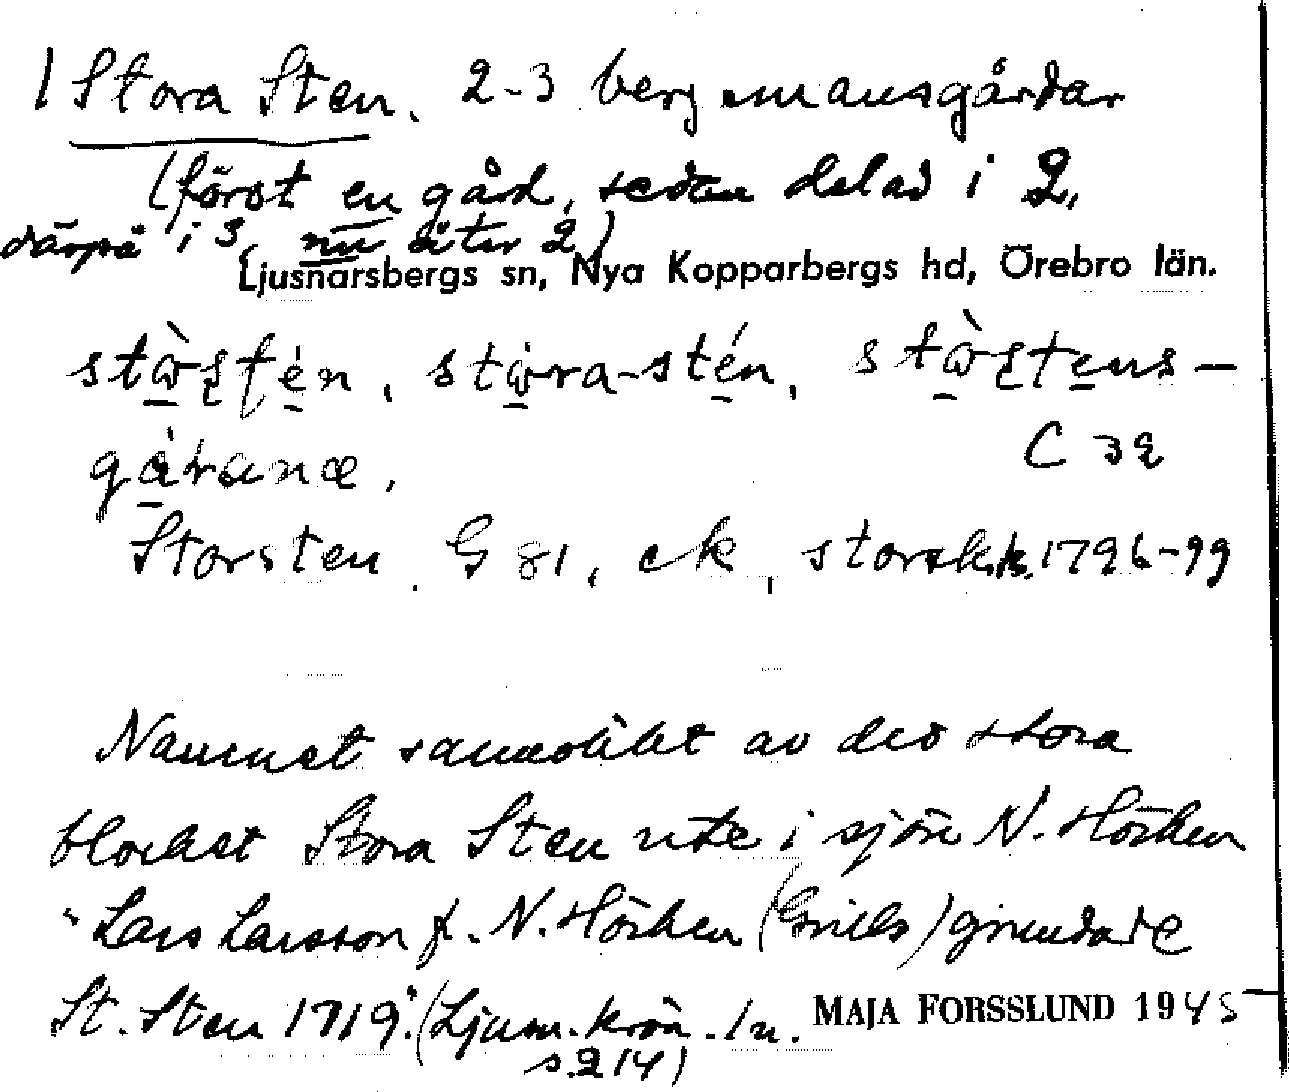 1 Stora Sten. 2-3 bergsmansgårdar
(först en gård, sedan delad i 2,
därpå i 3, nu åter 2)
Ljusnarsbergs sn, Nya Kopparbergs hd, Örebro län.
C 32
Storsten. G 81, ek, storsk.k. 1796-99
Namnet sannolikt av det stora
blocket Stora Sten ute i sjön N. Hörken
"Lars Larsson f. N. Hörken (Grills) grundade
St. Sten 1719". (Ljusn. krön. 1 u.
s. 214)
MAJA FORSSLUND 1945